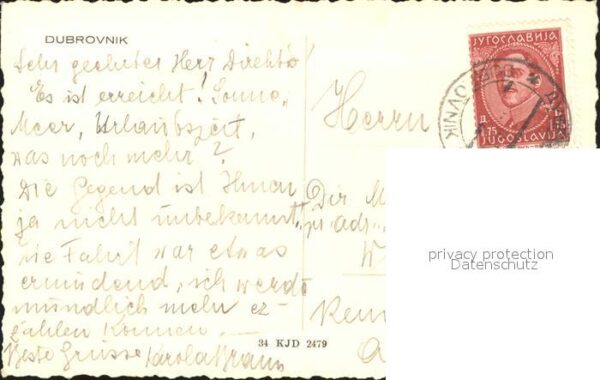 DUBROVNIK
Sehr geehrter Herr Direktor
Es ist erreicht! Sonne,
Meer, Urlaubszeit,
was noch mehr?
Die Gegend ist Ihnen
ja nicht unbekannt.
Die Fahrt war etwas
ermüdend, ich werde
mündlich mehr er-
zählen können.
Beste Grüsse Karola Braun
34 KJD 2479
ЈУГОСЛАВИЈА
1.75
JUGOSLAVIJA
Herrn
Dir M
privacy protection
Datenschutz